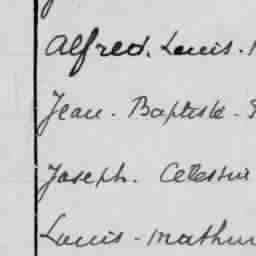 Alfred. Louis.
Jean. Baptiste.
Joseph. Celestin
Louis - Mathur